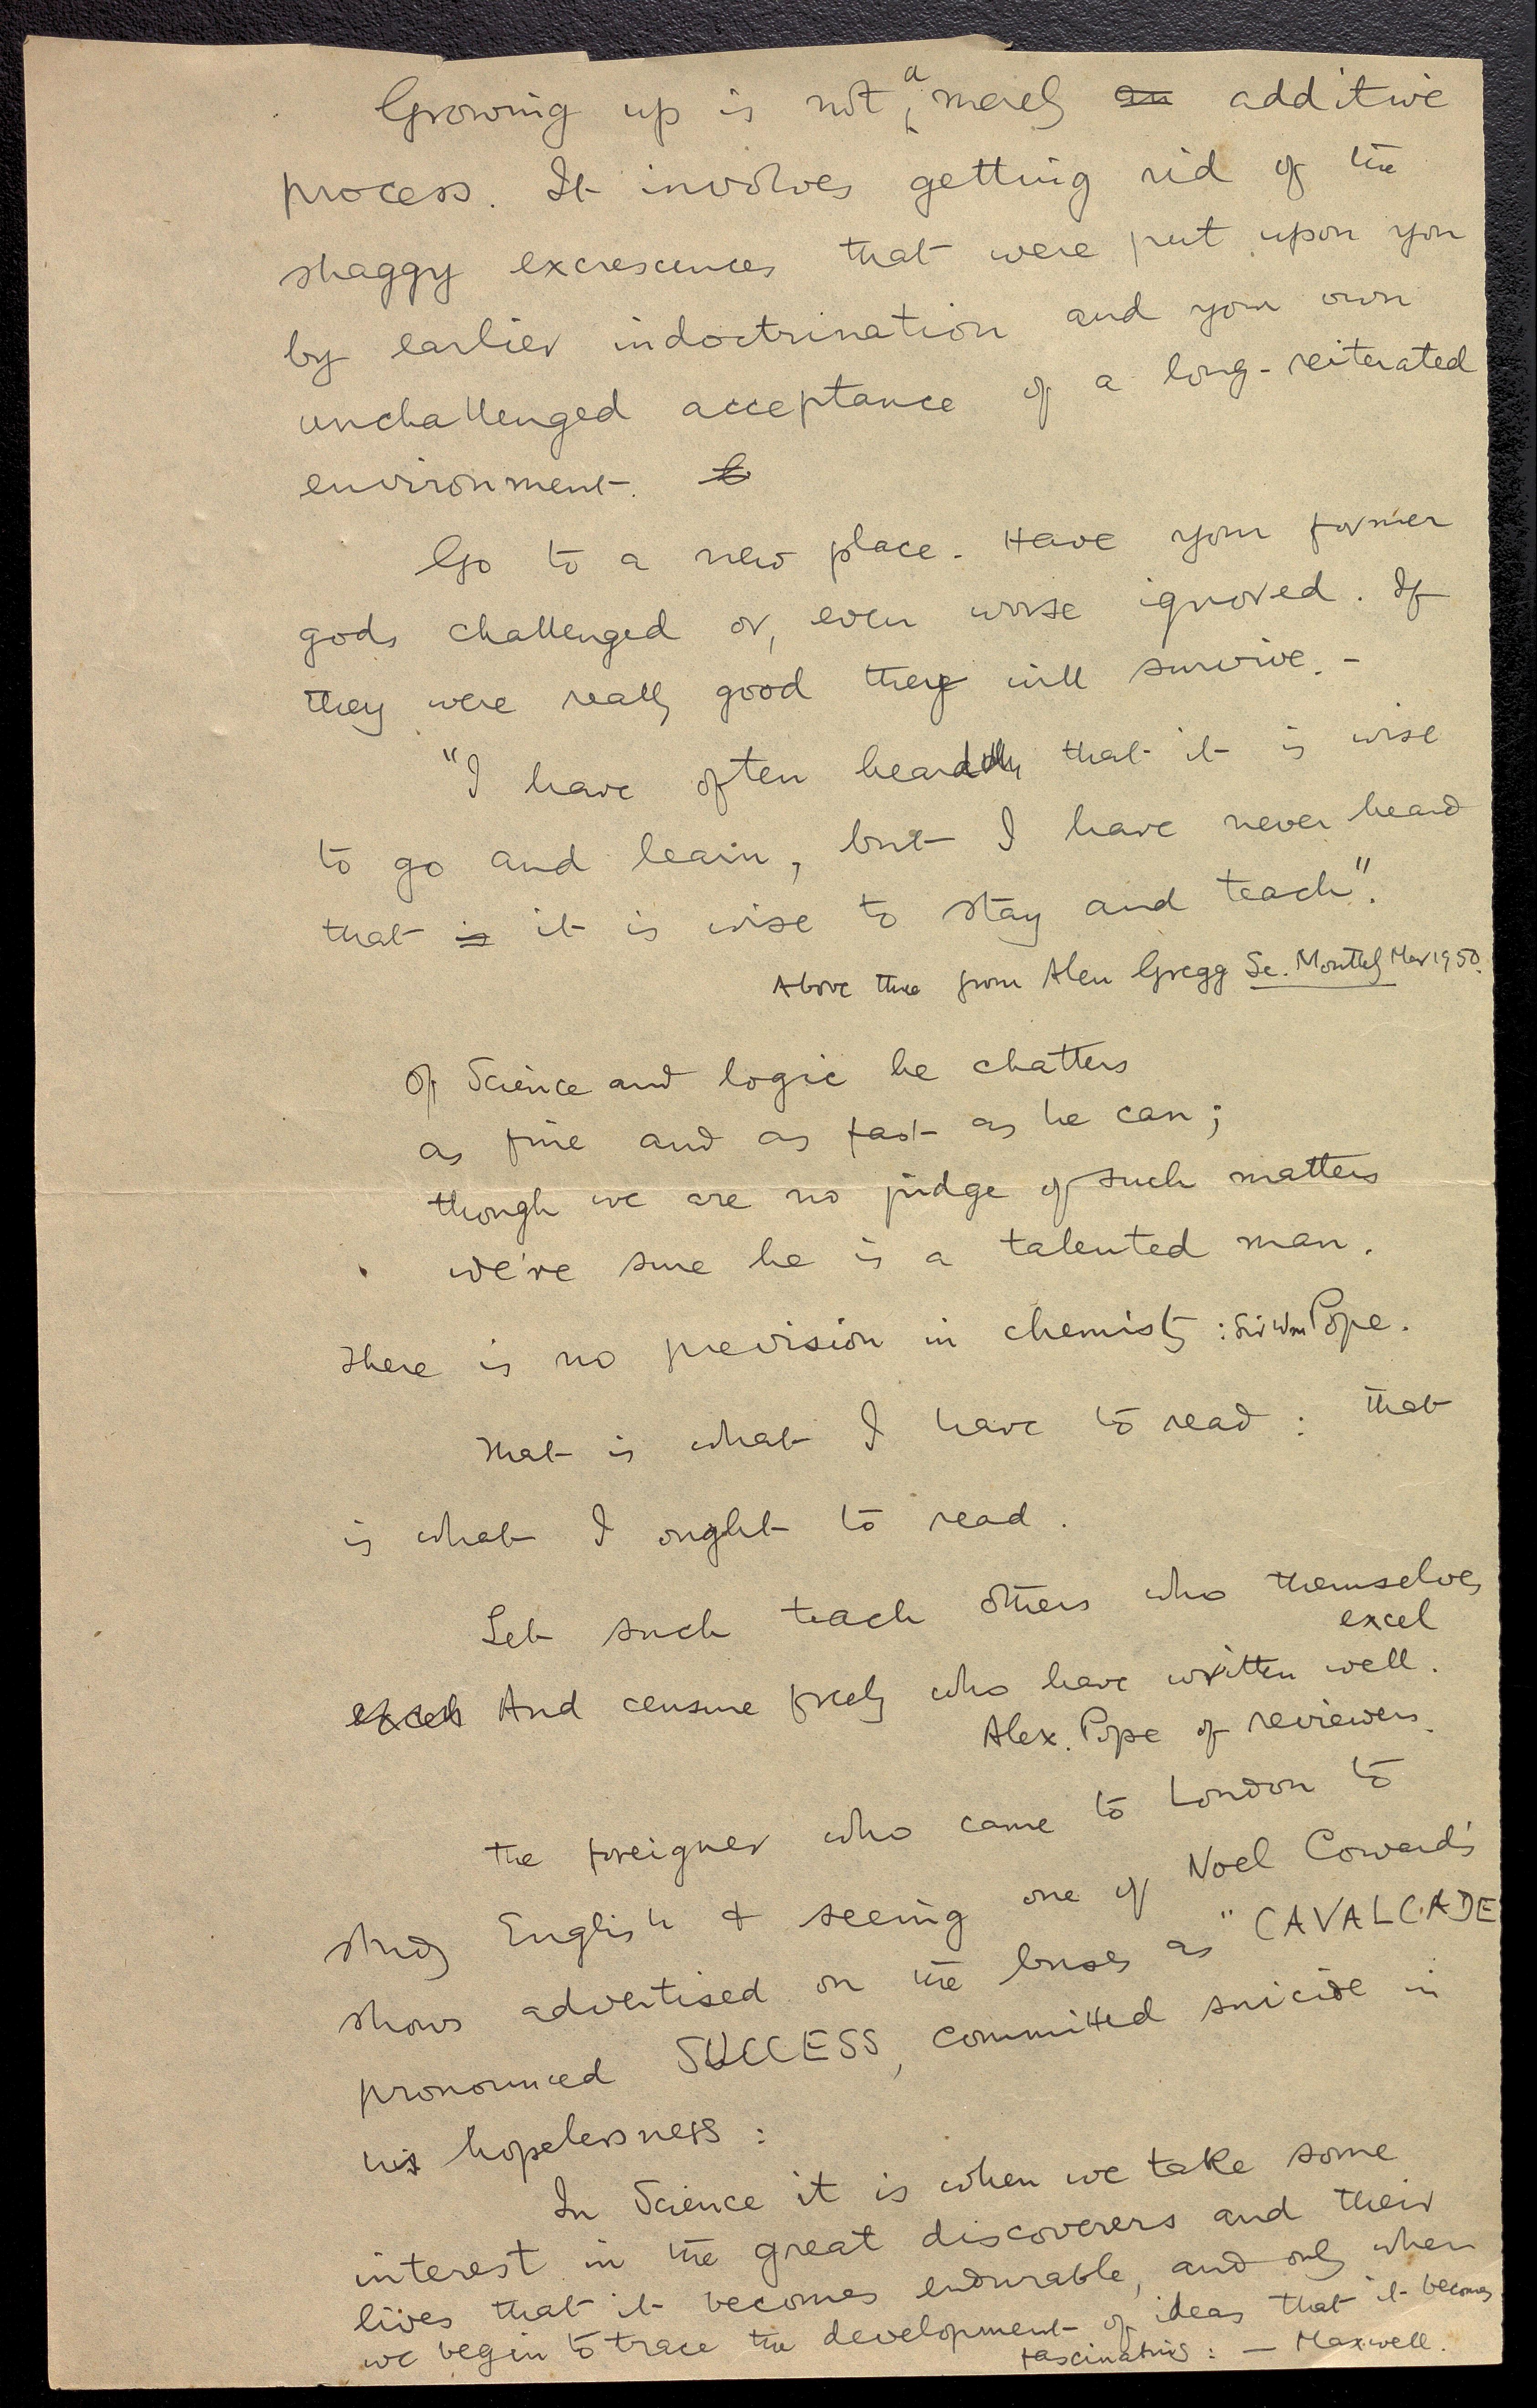 Growing up is not a merely an additive
process. It involves getting rid of the
shaggy excrescences that were put upon you
by earlier indoctrination and your own
unchallenged acceptance of a long-reiterated
environment.
Go to a new place. Have your former
gods challenged or, even worse ignored. If
they were really good they will survive. -
"I have often heard that it is wise
to go and learn, but I have never heard
that is it is wise to stay and teach".
Above three from Alan Gregg Sc. Monthly Mar 1950.
Of Science and logic he chatters
as fine and as fast as he can;
though we are no judge of such matters
we're sure he is a talented man.
There is no prevision in chemistry : Sir Wm Pope.
That is what I have to read : that
is what I ought to read.
Let such teach others who themselves
excel
excel And censure freely who have written well.
Alex. Pope of reviewers.
The foreigner who came to London to
study English & seeing one of Noel Coward's
shows advertised on the buses as "CAVALCADE
pronounced SUCCESS, committed suicide in
his hopelessness :
In Science it is when we take some
interest in the great discoverers and their
lives that it becomes endurable, and only when
we begin to trace the development of ideas that it becomes
fascinating : - Maxwell.